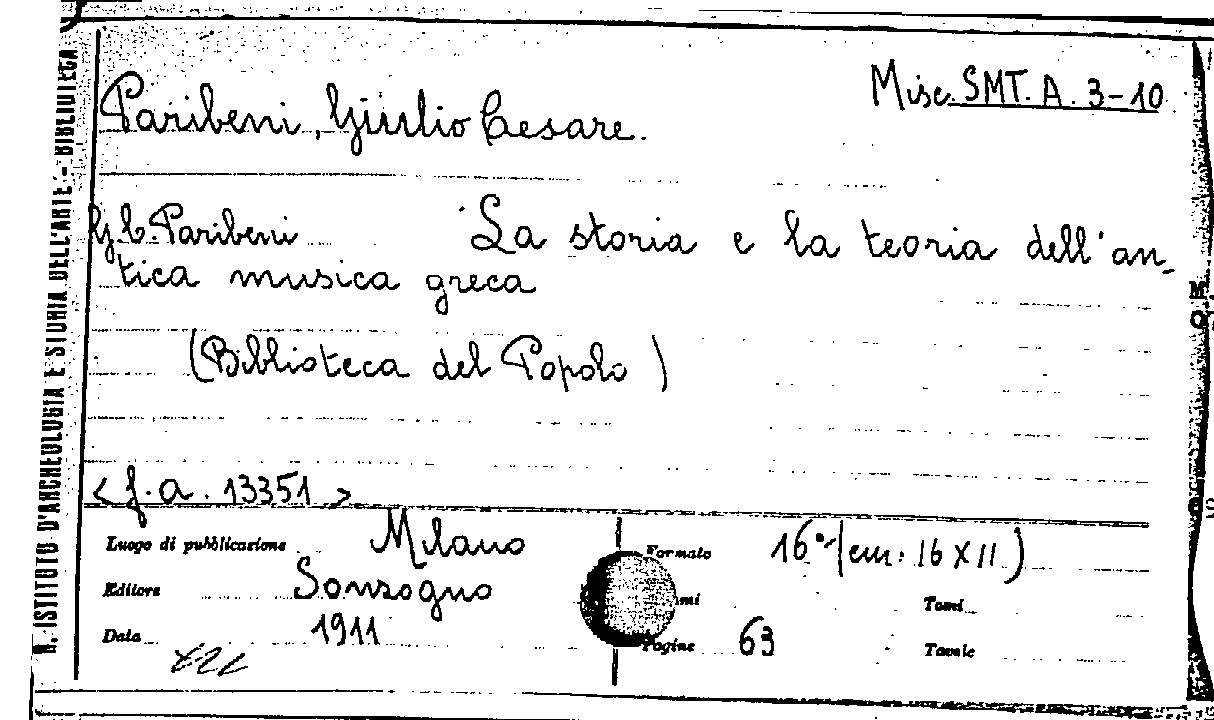 Misc. SMT. A. 3-10
Paribeni, Giulio Cesare.
G. C. Paribeni La storia e la teoria dell'an-
tica musica greca
(Biblioteca del Popolo)
<f.a. 13351>
Luogo di pubblicazione Milano
Editore Sonzogno
Data 1911
Formato 16° (cm: 16 X 11)
Tomi
Pagine 63
Tavole
R. ISTITUTO D'ARCHEOLOGIA E STORIA DELL'ARTE - BIBLIOTECA